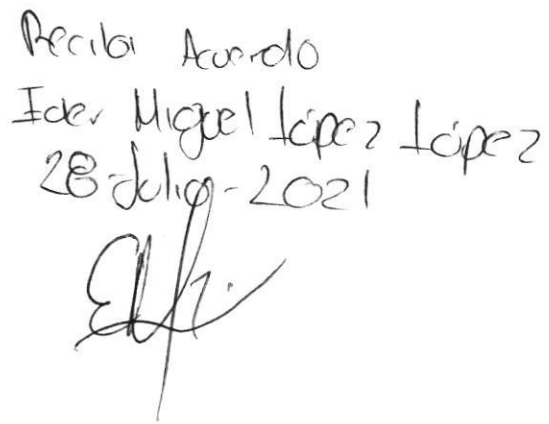 Recibi Acuerdo
Ider Miguel López López
28-Julio-2021